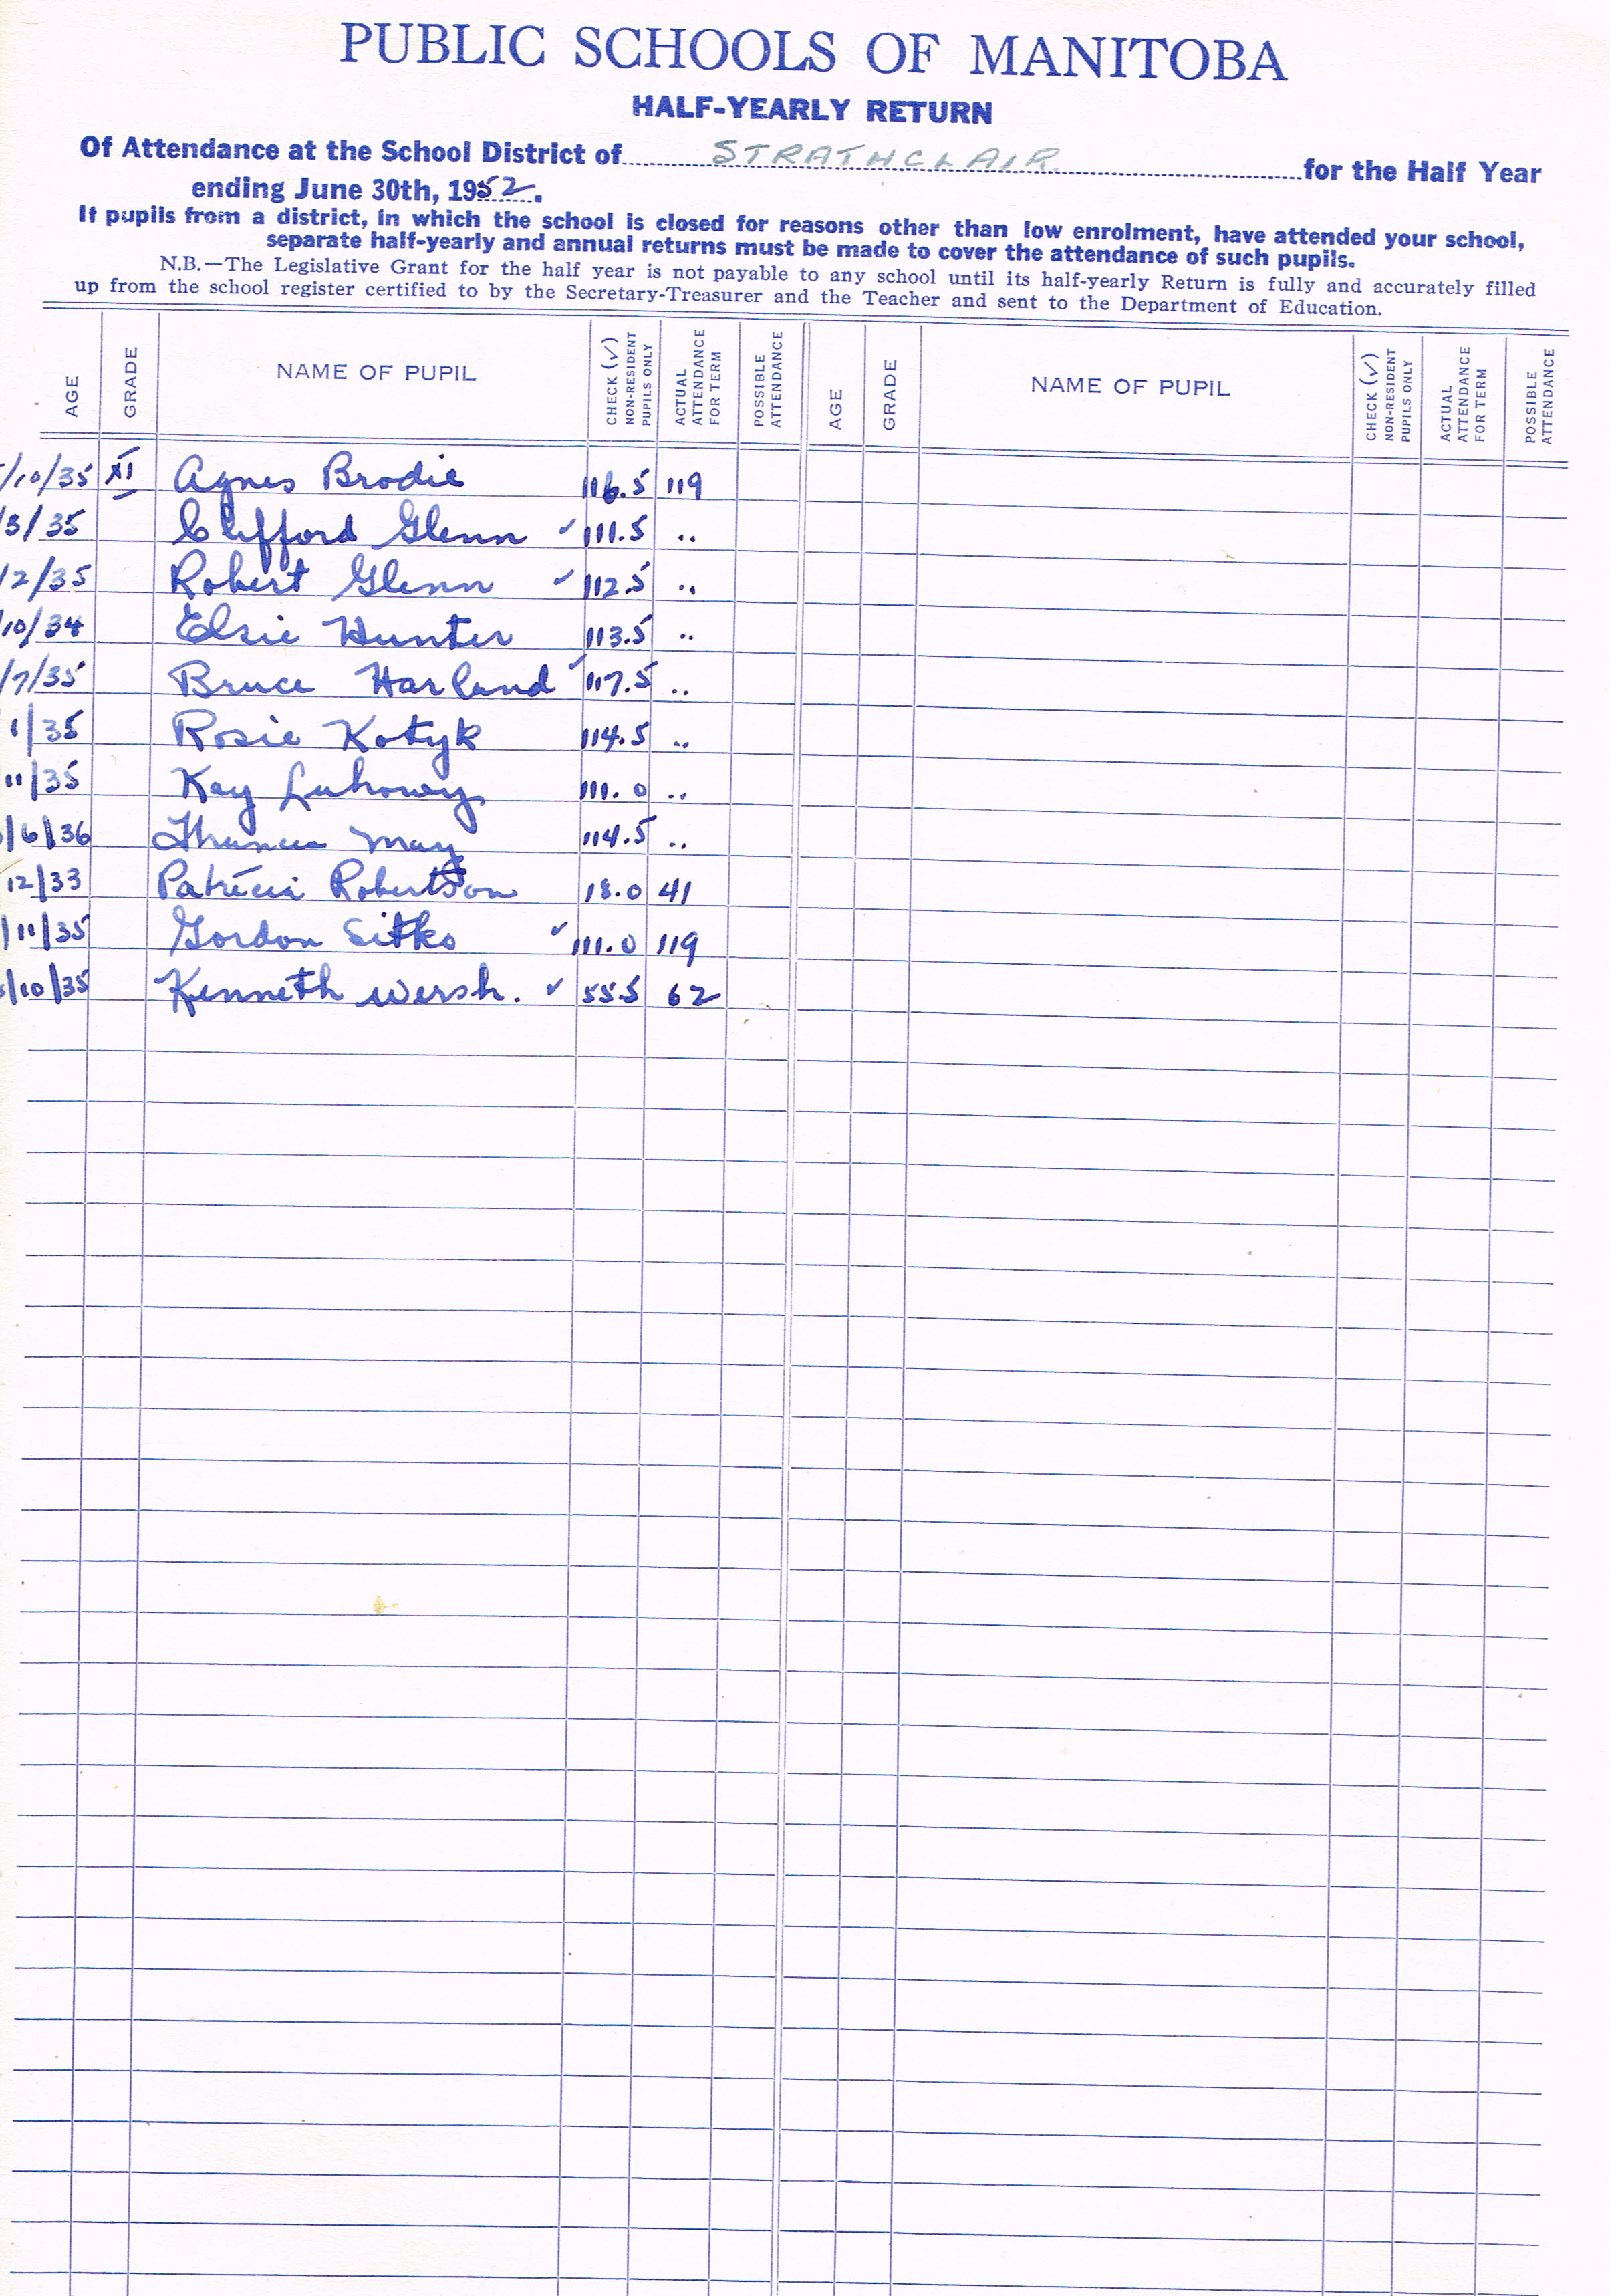 PUBLIC SCHOOLS OF MANITOBA
HALF-YEARLY RETURN
Of Attendance at the School District of STRATHCLAIR for the Half Year
ending June 30th, 1952.
If pupils from a district, in which the school is closed for reasons other than low enrolment, have attended your school,
separate half-yearly and annual returns must be made to cover the attendance of such pupils.
N.B.—The Legislative Grant for the half year is not payable to any school until its half-yearly Return is fully and accurately filled
up from the school register certified to by the Secretary-Treasurer and the Teacher and sent to the Department of Education.
AGE GRADE NAME OF PUPIL CHECK (√) NON-RESIDENT PUPILS ONLY ACTUAL ATTENDANCE FOR TERM POSSIBLE ATTENDANCE AGE GRADE NAME OF PUPIL CHECK (√) NON-RESIDENT PUPILS ONLY ACTUAL ATTENDANCE FOR TERM POSSIBLE ATTENDANCE
/10/35 XI Agnes Brodie 116.5 119
/3/35 Clifford Glenn ✓ 111.5 ..
/2/35 Robert Glenn ✓ 112.5 ..
10/34 Elsie Hunter 113.5 ..
/7/35 Bruce Harland ✓ 117.5 ..
1/35 Rosie Kotyk 114.5 ..
11/35 Kay Luhowy 111.0 ..
/6/36 May 114.5 ..
12/33 Patricia Robertson 18.0 41
/11/35 Gordon Sitko ✓ 111.0 119
/10/35 Kenneth Wersh. ✓ 55.5 62